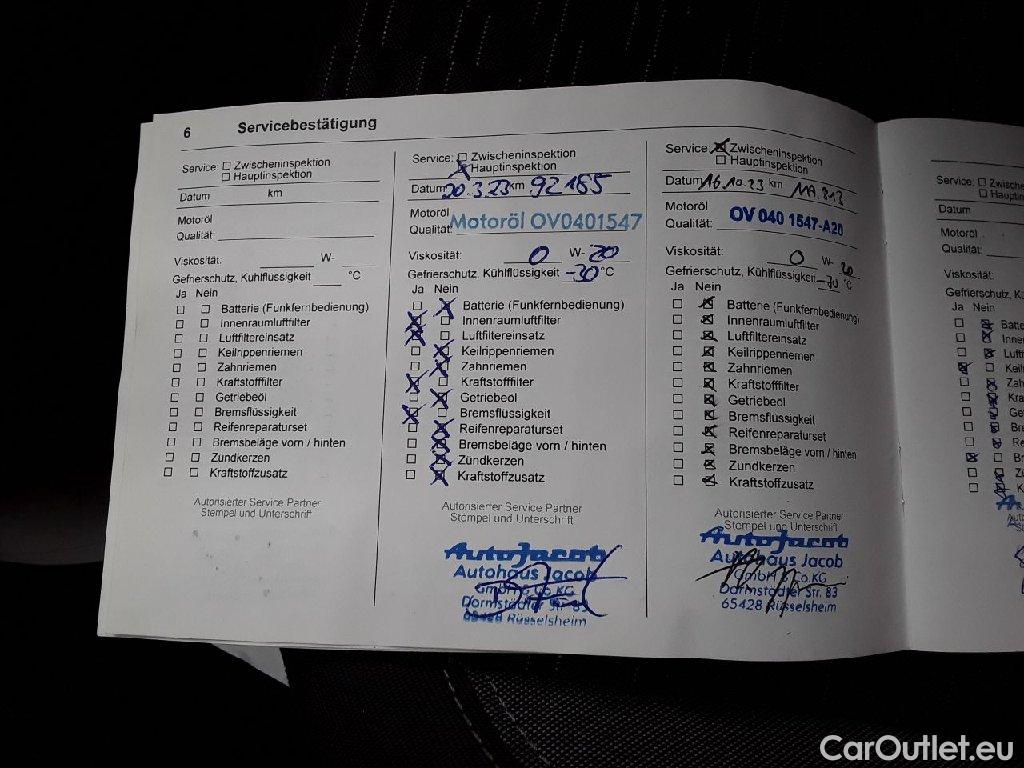 6 Servicebestätigung
Service: Zwischeninspektion
Hauptinspektion
Datum km
Motoröl
Qualität:
Viskosität: W-
Gefrierschutz, Kühlflüssigkeit °C
Ja Nein
Batterie (Funkfernbedienung)
Innenraumluftfilter
Luftfiltereinsatz
Keilrippenriemen
Zahnriemen
Kraftstofffilter
Getriebeöl
Bremsflüssigkeit
Reifenreparaturset
Bremsbeläge vorn / hinten
Zündkerzen
Kraftstoffzusatz
Autorisierter Service Partner
Stempel und Unterschrift
Service: Zwischeninspektion
Hauptinspektion
Datum 20.3.23 km 92185
Motoröl
Qualität: Motoröl OV0401547
Viskosität: 0 W- 20
Gefrierschutz, Kühlflüssigkeit -30 °C
Ja Nein
Batterie (Funkfernbedienung)
Innenraumluftfilter
Luftfiltereinsatz
Keilrippenriemen
Zahnriemen
Kraftstofffilter
Getriebeöl
Bremsflüssigkeit
Reifenreparaturset
Bremsbeläge vorn / hinten
Zündkerzen
Kraftstoffzusatz
Autorisierter Service Partner
Stempel und Unterschrift
AutoJacob
Autohaus Jacob
GmbH & Co KG
Darmstädter Str. 83
65428 Rüsselsheim
Service: Zwischeninspektion
Hauptinspektion
Datum 16.10.23 km
Motoröl
Qualität: OV 040 1547-A20
Viskosität: 0 W- 20
Gefrierschutz, Kühlflüssigkeit °C
Ja Nein
Batterie (Funkfernbedienung)
Innenraumluftfilter
Luftfiltereinsatz
Keilrippenriemen
Zahnriemen
Kraftstofffilter
Getriebeöl
Bremsflüssigkeit
Reifenreparaturset
Bremsbeläge vorn / hinten
Zündkerzen
Kraftstoffzusatz
Autorisierter Service Partner
Stempel und Unterschrift
AutoJacob
Autohaus Jacob
GmbH & Co KG
Darmstädter Str. 83
65428 Rüsselsheim
Service:
Datum
Motoröl
Qualität:
Viskosität:
Gefrierschutz, K
Ja Nein
CarOutlet.eu